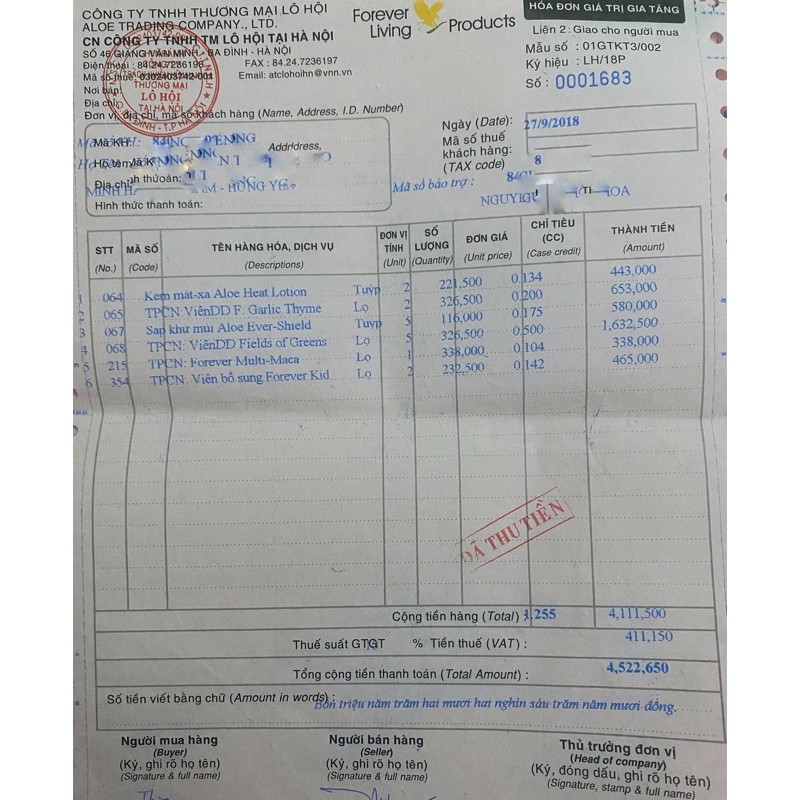 CÔNG TY TNHH THƯƠNG MẠI LÔ HỘI
ALOE TRADING COMPANY., LTD.
CN CÔNG TY TNHH TM LÔ HỘI TẠI HÀ NỘI
SỐ 46 GIANG VĂN MINH - BA ĐÌNH - HÀ NỘI
Điện thoại : 84.24.7236198 FAX : 84.24.7236197
Mã số thuế: 0302403742-001 Email: atclohoihn@vnn.vn
Nơi bán:
Địa chỉ:
THƯƠNG MẠI
LÔ HỘI
TẠI HÀ NỘI
Q. BA ĐÌNH - T.P HÀ NỘI
Forever
Living Products
HÓA ĐƠN GIÁ TRỊ GIA TĂNG
Liên 2: Giao cho người mua
Mẫu số : 01GTKT3/002
Ký hiệu : LH/18P
Số : 0001683
Đơn vị, địa chỉ, mã số khách hàng (Name, Address, I.D. Number)
Mã KH:
Họ tên
Địa chỉ
- HƯNG YÊN
Hình thức thanh toán:
Ngày (Date): 27/9/2018
Mã số thuế
khách hàng:
(TAX code)
Mã số bảo trợ :
STT MÃ SỐ TÊN HÀNG HÓA, DỊCH VỤ ĐƠN VỊ TÍNH SỐ LƯỢNG ĐƠN GIÁ CHỈ TIÊU (CC) THÀNH TIỀN
(No.) (Code) (Descriptions) (Unit) (Quantity) (Unit price) (Case credit) (Amount)
1 064 Kem mát-xa Aloe Heat Lotion Tuýp 2 221,500 0.134 443,000
2 065 TPCN: ViênDD F. Garlic Thyme Lọ 2 326,500 0.200 653,000
3 067 Sáp khử mùi Aloe Ever-Shield Tuýp 5 116,000 0.175 580,000
4 068 TPCN: ViênDD Fields of Greens Lọ 5 326,500 0.500 1,632,500
5 215 TPCN: Forever Multi-Maca Lọ 1 338,000 0.104 338,000
6 354 TPCN: Viên bổ sung Forever Kid Lọ 2 232,500 0.142 465,000
ĐÃ THU TIỀN
Cộng tiền hàng (Total) : 1.255 4,111,500
Thuế suất GTGT % Tiền thuế (VAT) : 411,150
Tổng cộng tiền thanh toán (Total Amount) : 4,522,650
Số tiền viết bằng chữ (Amount in words) : Bốn triệu năm trăm hai mươi hai nghìn sáu trăm năm mươi đồng.
Người mua hàng Người bán hàng Thủ trưởng đơn vị
(Buyer) (Seller) (Head of company)
(Ký, ghi rõ họ tên) (Ký, ghi rõ họ tên) (Ký, đóng dấu, ghi rõ họ tên)
(Signature & full name) (Signature & full name) (Signature, stamp & full name)